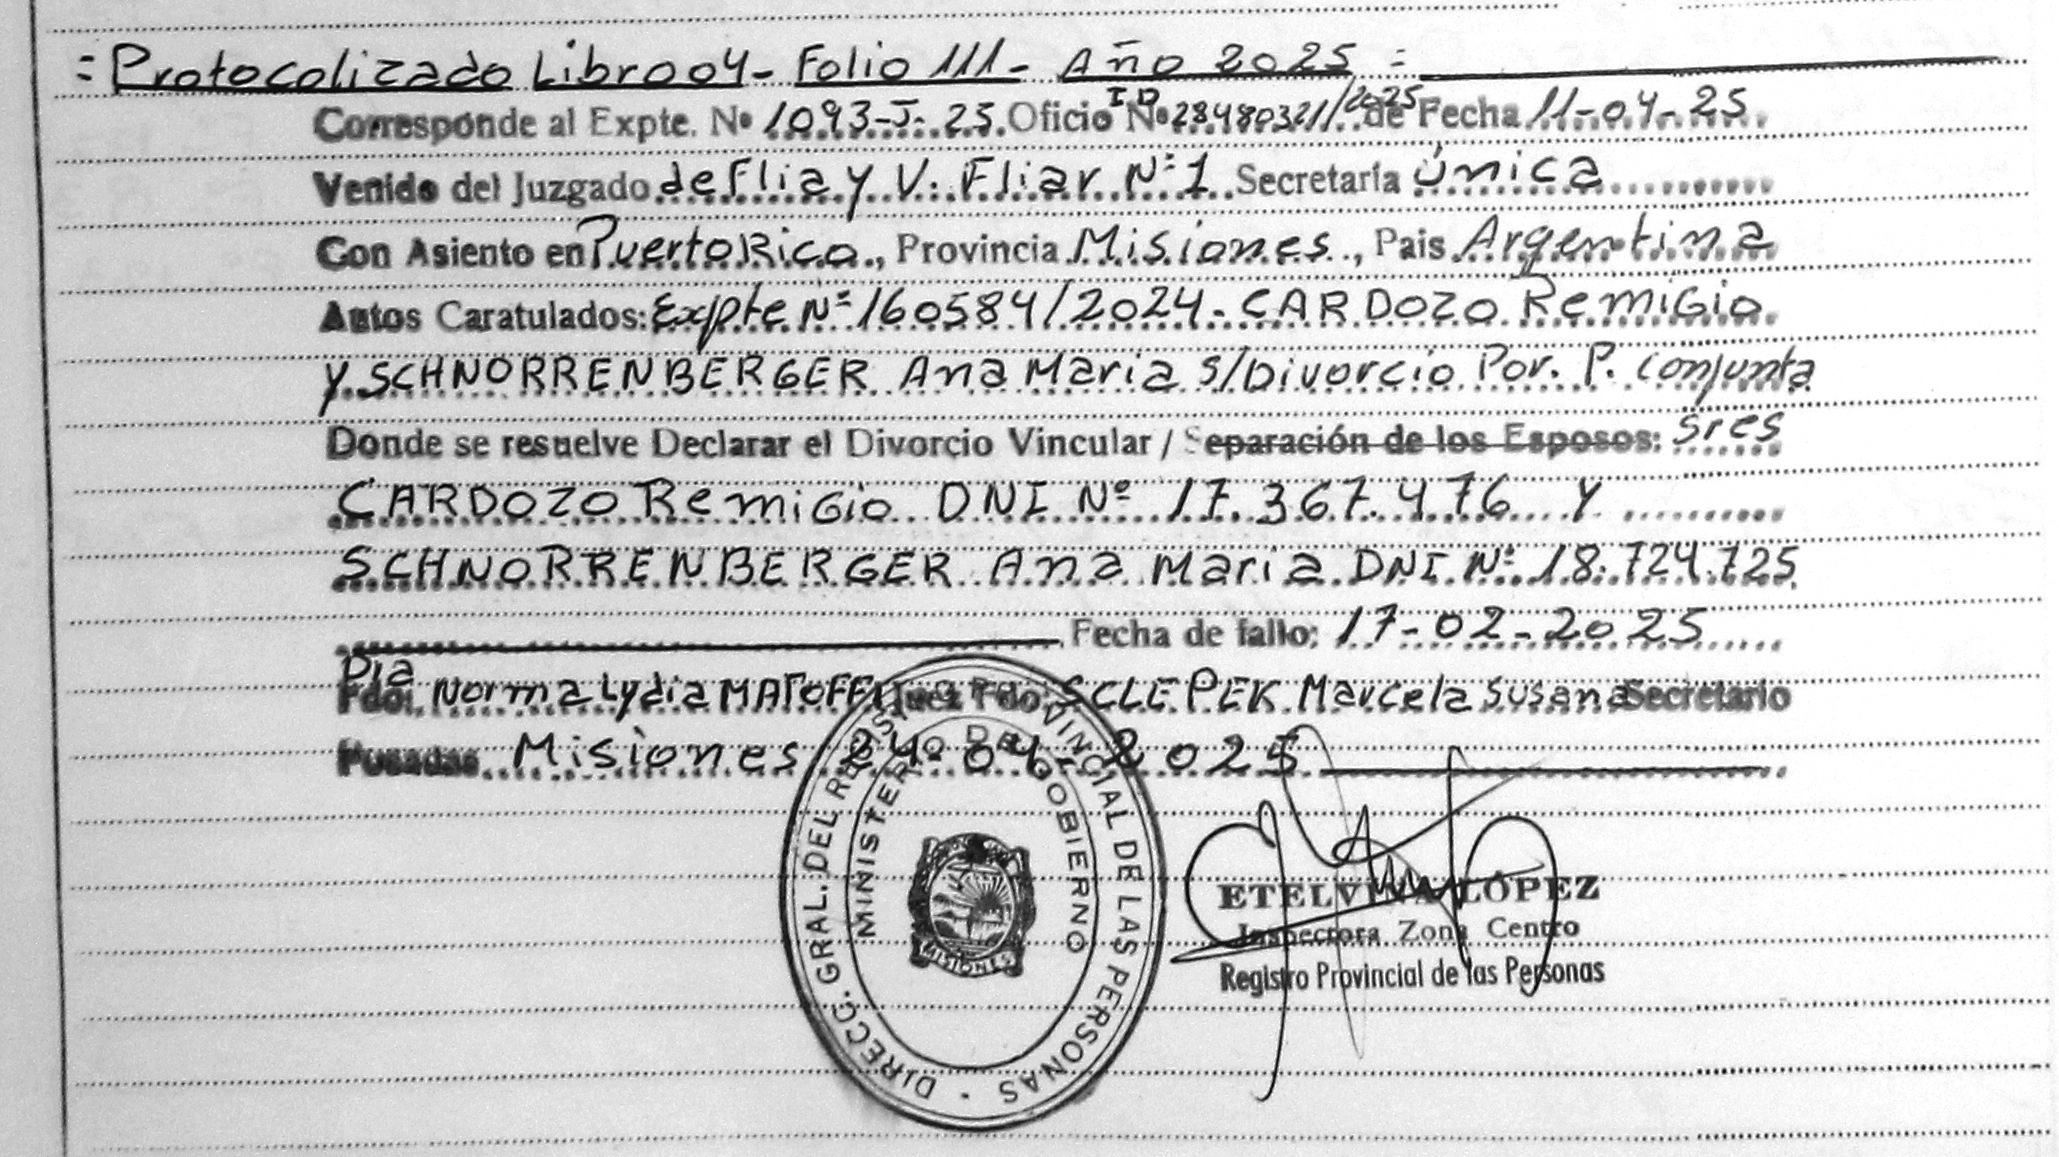 = Protocolizado Libro 04 - Folio 111 - Año 2025 =
Corresponde al Expte. Nº 1093-J-25. Oficio ID Nº 28480321/2025 de Fecha 11-04-25.
Venido del Juzgado de Flia y V. Fliar Nº 1. Secretaría única
Con Asiento en Puerto Rico, Provincia Misiones, Pais Argentina
Autos Caratulados: Expte Nº 160584/2024 - CARDOZO Remigio
y SCHNORRENBERGER Ana Maria s/Divorcio Por. P. conjunta
Donde se resuelve Declarar el Divorcio Vincular / Separación de los Esposos: Sres
CARDOZO Remigio DNI Nº 17.367.476 y
SCHNORRENBERGER Ana Maria DNI Nº 18.724.725
Fecha de fallo: 17-02-2025
Dra
Fdo: Norma Lydia Juez Fdo: SCLEPEK Marcela Susana Secretario
Posadas. Misiones 24-04-2025
DIRECC. GRAL. DEL REGISTRO PROVINCIAL DE LAS PERSONAS
MINISTERIO DE GOBIERNO
MISIONES
ETELVINA LÓPEZ
Inspectora Zona Centro
Registro Provincial de las Personas